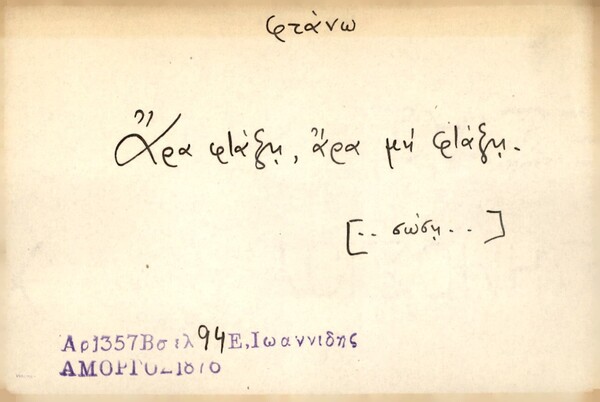 φτάνω
Ἄρα φτάξῃ, ἄρα μή φτάξῃ.
[.. σώσῃ. . ]
Αρ1357Βσελ94Ε,Ιωαννιδης
ΑΜΟΡΓΟΣ1876